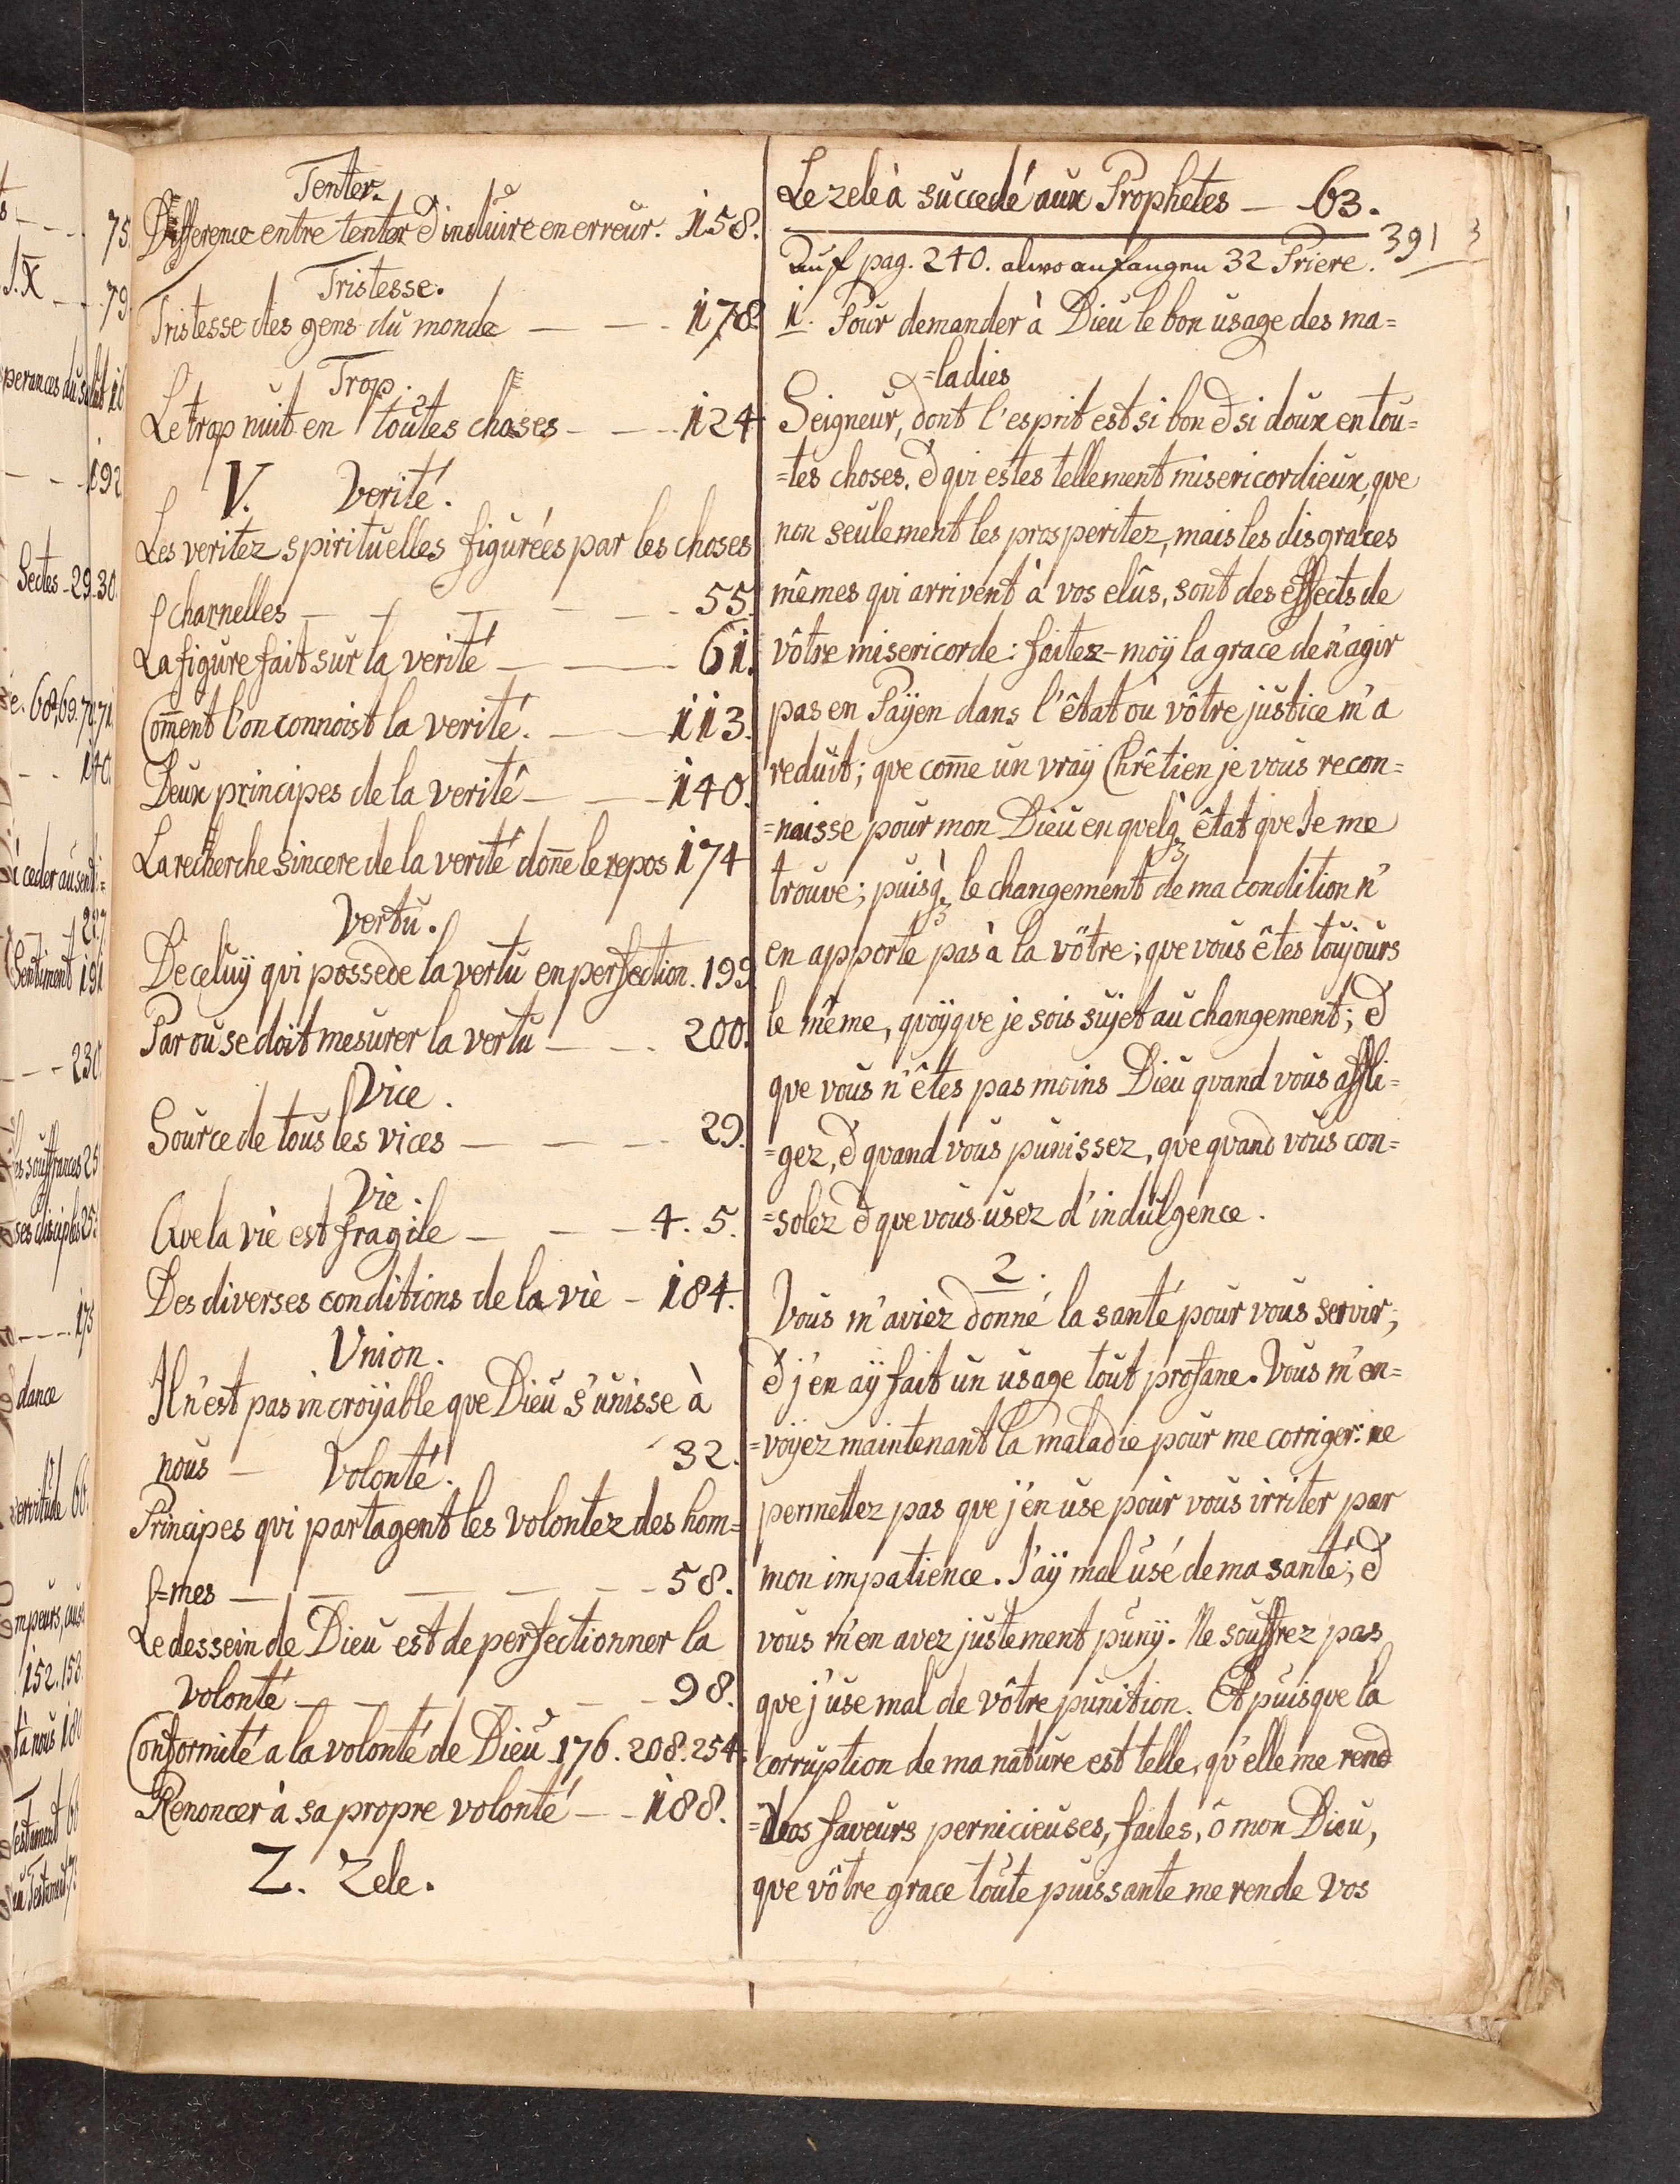 Tenter.
Difference entre tenter & induire en erreur. 158.
Tristesse.
Tristesse des gens du monde — — - 178.
Trop.
Le trop nuit en toutes choses — — — 124
V. Verité.
Les veritez spirituelles figurées par les choses
charnelles — — — — - 55.
La figure fait sur la verité — — 61.
Com̄ent l'on connoist la verité. — — 113.
Deux principes de la verité — — - 140.
La recherche sincere de la verité don̄e le repos 174
Vertu.
De celuÿ qui possede la vertu en perfection. 199
Par ou se doit mesurer la vertu — — . 200.
Vice.
Source de tous les vices — — — - 29.
Vie.
Que la vie est fragile — — — 4. 5.
Des diverses conditions de la vie — 184.
Union.
Il n'est pas incroÿable que Dieu s'unisse à
nous — 32.
Volonté.
Principes qui partagent les volontez des hom=
=mes — — — — - - 58.
Le dessein de Dieu est de perfectionner la
volonté — — — — - 98.
Conformité a la volonté de Dieu 176. 208. 254.
Renoncer à sa propre volonté — - 188.
Z. Zele.
Le zele à succedé aux Prophetes — 63.
391 3
auf pag. 240. alwo anfangen 32 Priere.
1. Pour demander à Dieu le bon usage des ma=
=ladies
Seigneur, dont l'esprit est si bon & si doux en tou=
=tes choses, & qui estes tellement misericordieux, que
non seulement les prosperitez, mais les disgraces
mêmes qui arrivent à vos elûs, sont des effects de
vôtre misericorde: faites-moÿ la grace de n'agir
pas en Paÿen dans l'êtat où vôtre justice m'a
reduit; que com̄e un vraÿ Chrêtien je vous recon=
=naisse pour mon Dieu en quelq3 êtat que Je me
trouve; puisq3 le changement de ma condition n'
en apporte pas à la vôtre; que vous êtes toujours
le même, quoÿque je sois sujet au changement; &
que vous n'êtes pas moins Dieu quand vous affli=
=gez, & quand vous punissez, que quand vous con=
=solez & que vous usez d'indulgence.
2.
Vous m'aviez donné la santé pour vous servir;
& j'en aÿ fait un usage tout profane. Vous m'en=
=voÿez maintenant la maladie pour me corriger: ne
permettez pas que j'en use pour vous irriter par
mon impatience. J'aÿ mal usé de ma santé; &
vous m'en avez justement punÿ. Ne souffrez pas
que j'use mal de vôtre punition. Et puisque la
corruption de ma nature est telle, qu'elle me rend
=vos faveurs pernicieuses, faites, ô mon Dieu,
que vôtre grace toute puissante me rende vos